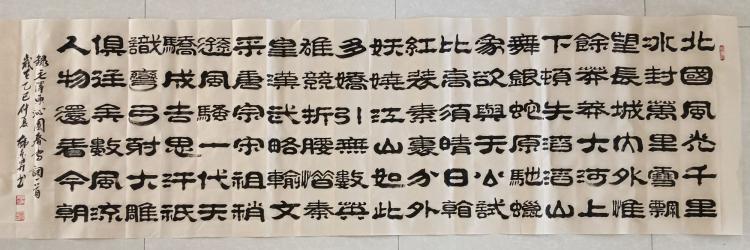 北國風光千里
冰封萬里雪飄
望長城內外惟
餘莽莽大河上
下頓失滔滔山
舞銀蛇原馳蠟
象欲與天公試
比高須晴日看
紅裝素裹分外
妖嬈江山如此
多嬌引無數英
雄競折腰惜秦
皇漢武略輸文
采唐宗宋祖稍
遜風騷一代天
驕成吉思汗祇
識彎弓射大雕
俱往矣數風流
人物還看今朝
毛澤東沁園春雪詞一首
歲在乙巳仲夏書